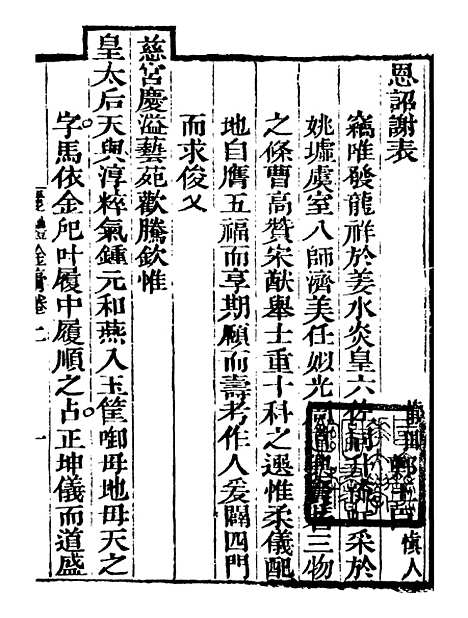 恩詔謝表
慎人
竊唯發龍祥於姜水炎皇六佐采於
姚墟虞室八師濟美任姒光三物
之條曹高贊宋猷舉士重十科之選惟柔儀配
地自膺五福而享期頤而壽考作人爰闢四門
而求俊乂
慈宮慶溢藝苑歡騰欽惟
皇太后天與淳粹氣鍾元和燕入玉筐唧毋地毋天之
字馬依金叶履中履順之占正坤儀而道盛
卷二
一